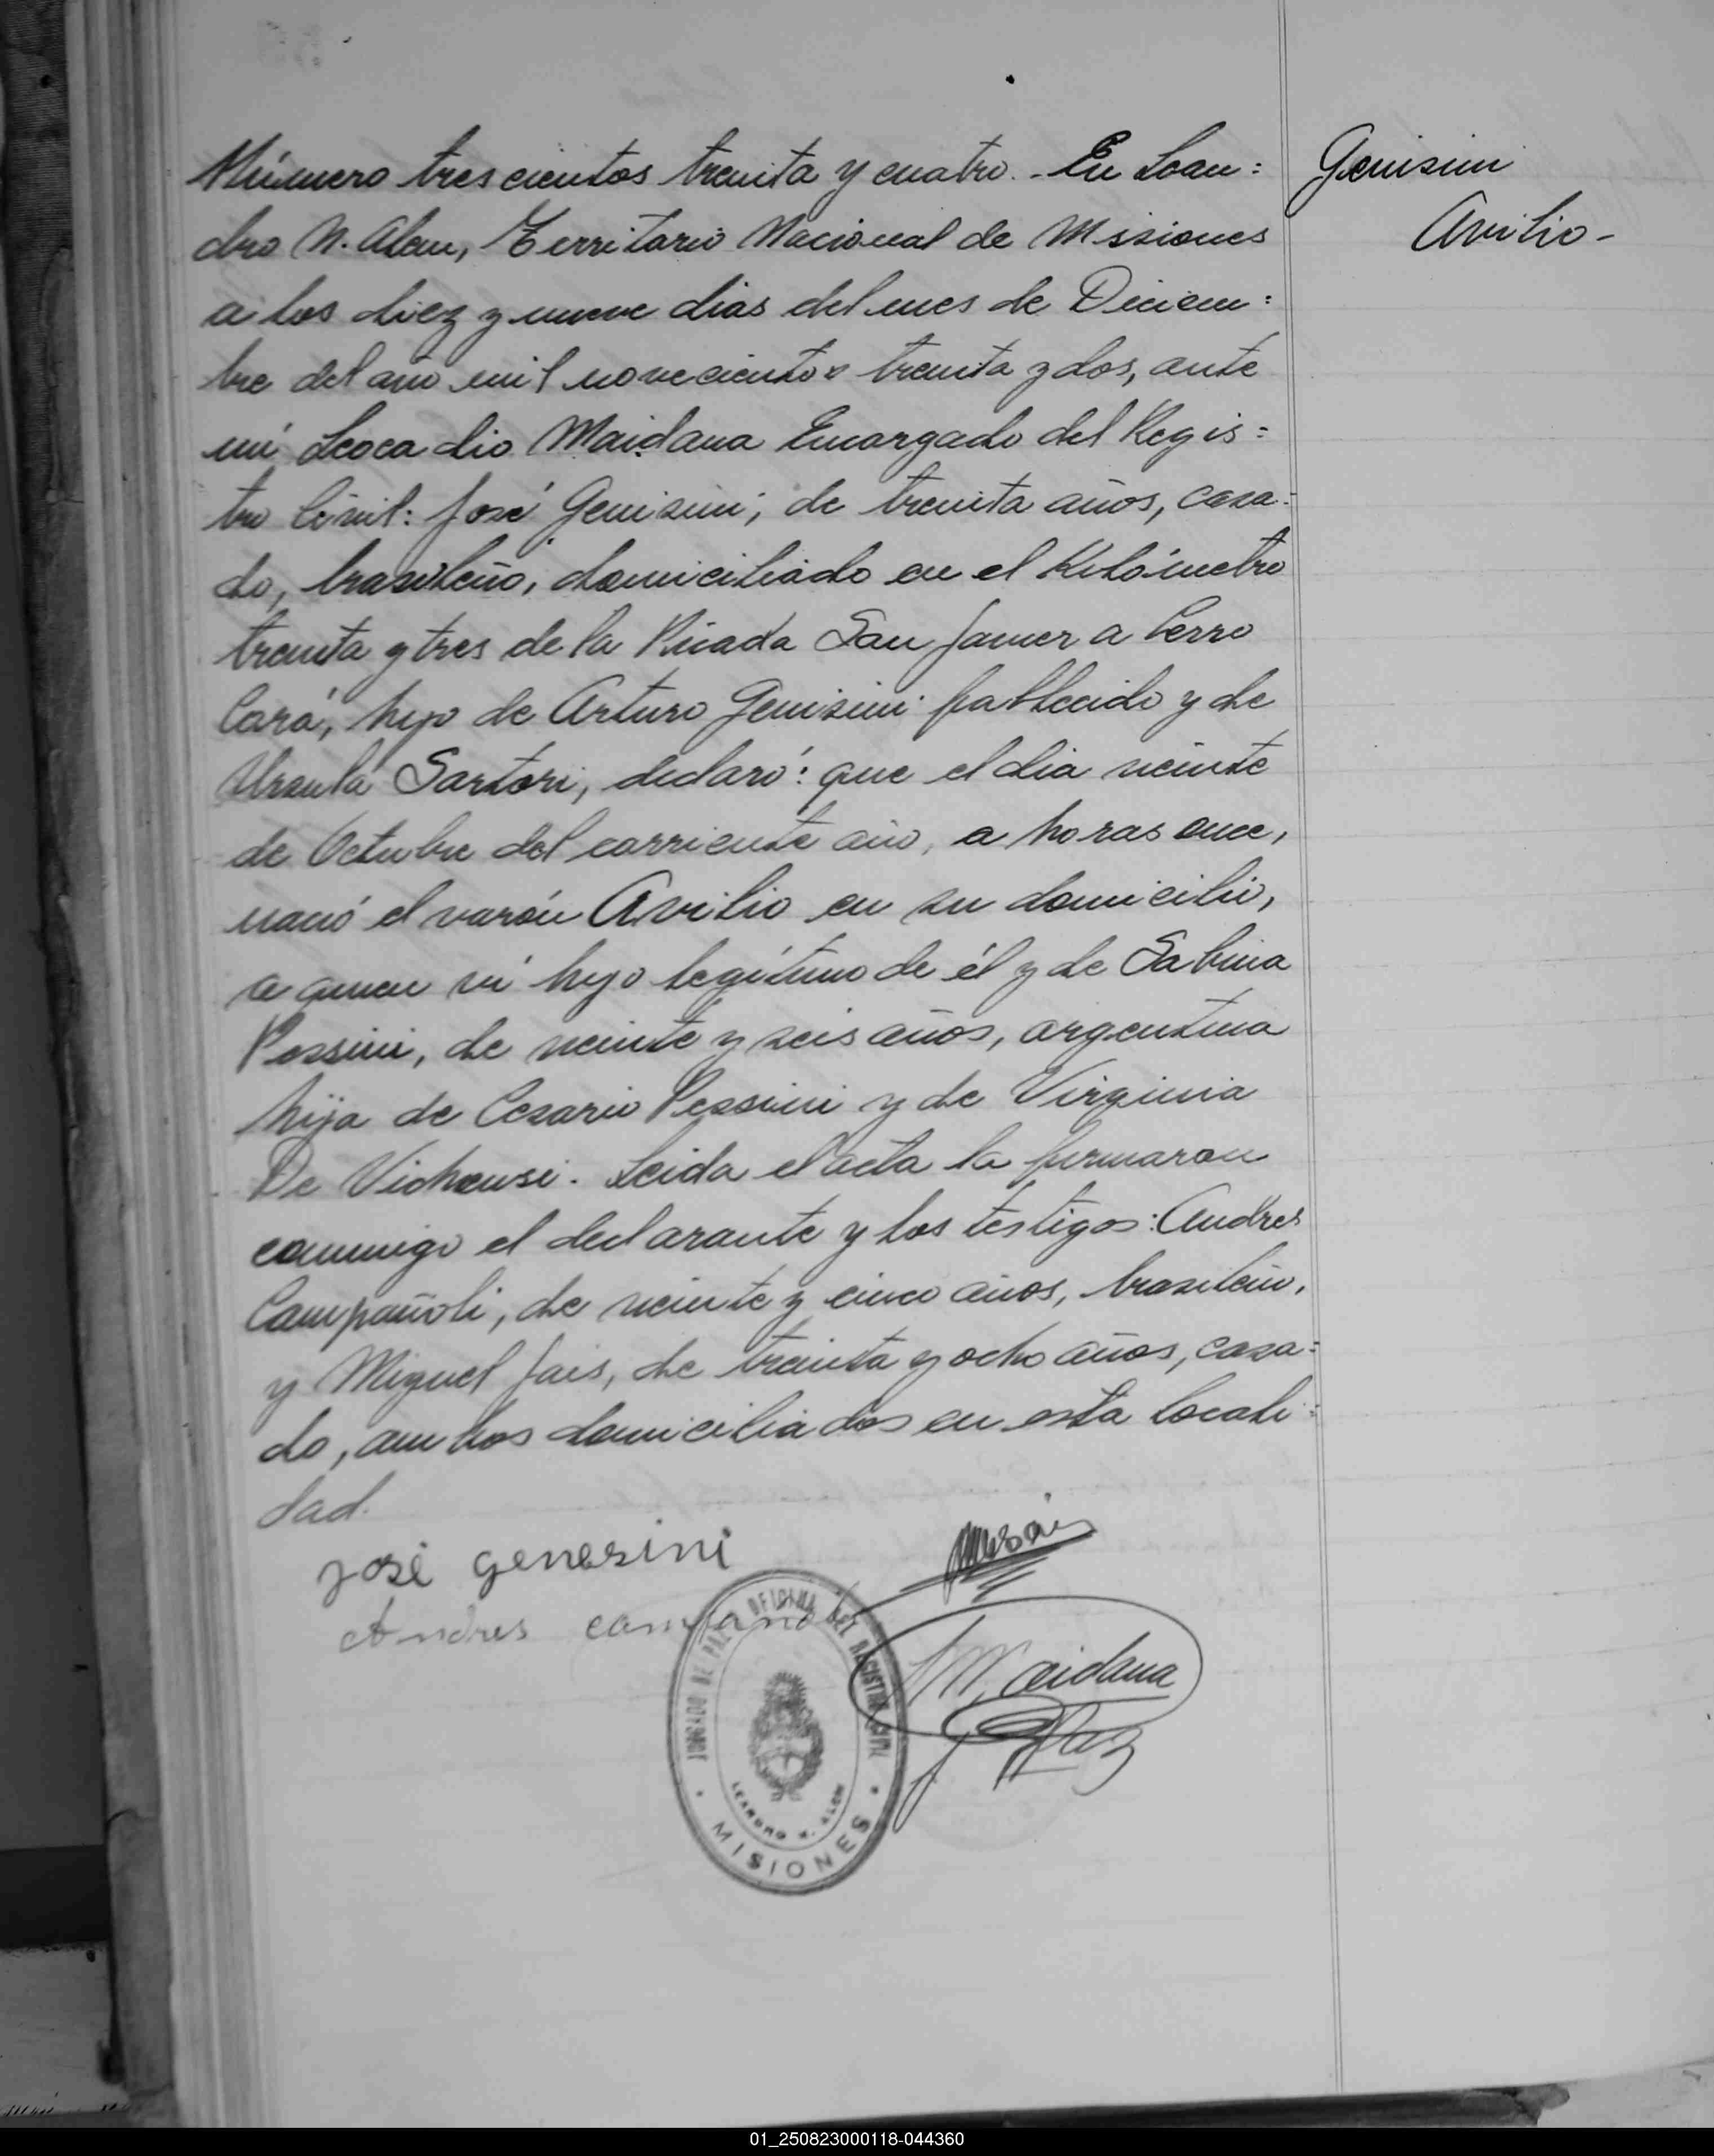 Número trescientos treinta y cuatro. - En Lean=
dro N. Alem, Territorio Nacional de Missiones
a los diez y nueve dias del mes de Diciem=
bre del año mil novecientos treinta y dos, ante
mí Leocadio Maidana Encargado del Regis=
tro Civil: José Genisini, de treinta años, casa=
do, brasileño, domiciliado en el Kilómetro
treinta y tres de la Picada San Javier a Cerro
Corá, hijo de Arturo Genisini fallecido y de
Ursula Sartori, declaró: que el dia veinte
de Octubre del corriente año, a horas once,
nació el varón Avilio en su domicilio,
a quien vi hijo legítimo de él y de Sabina
Pessini, de veinte y seis años, argentina
hija de Cesario Pessini y de Virginia
De Vichensi. Leida el acta la firmaron
conmigo el declarante y los testigos: Andres
Campañoli, de veinte y cinco años, brasileño,
y Miguel Jais, de treinta y ocho años, casa=
do, ambos domiciliados en esta locali=
dad.
Genisini
Avilio -
José genesini
Andres campanol
Maidana
JUZGADO DE PAZ OFICINA DEL REGISTRO CIVIL
LEANDRO N. ALEM
MISIONES
01_250823000118-044360